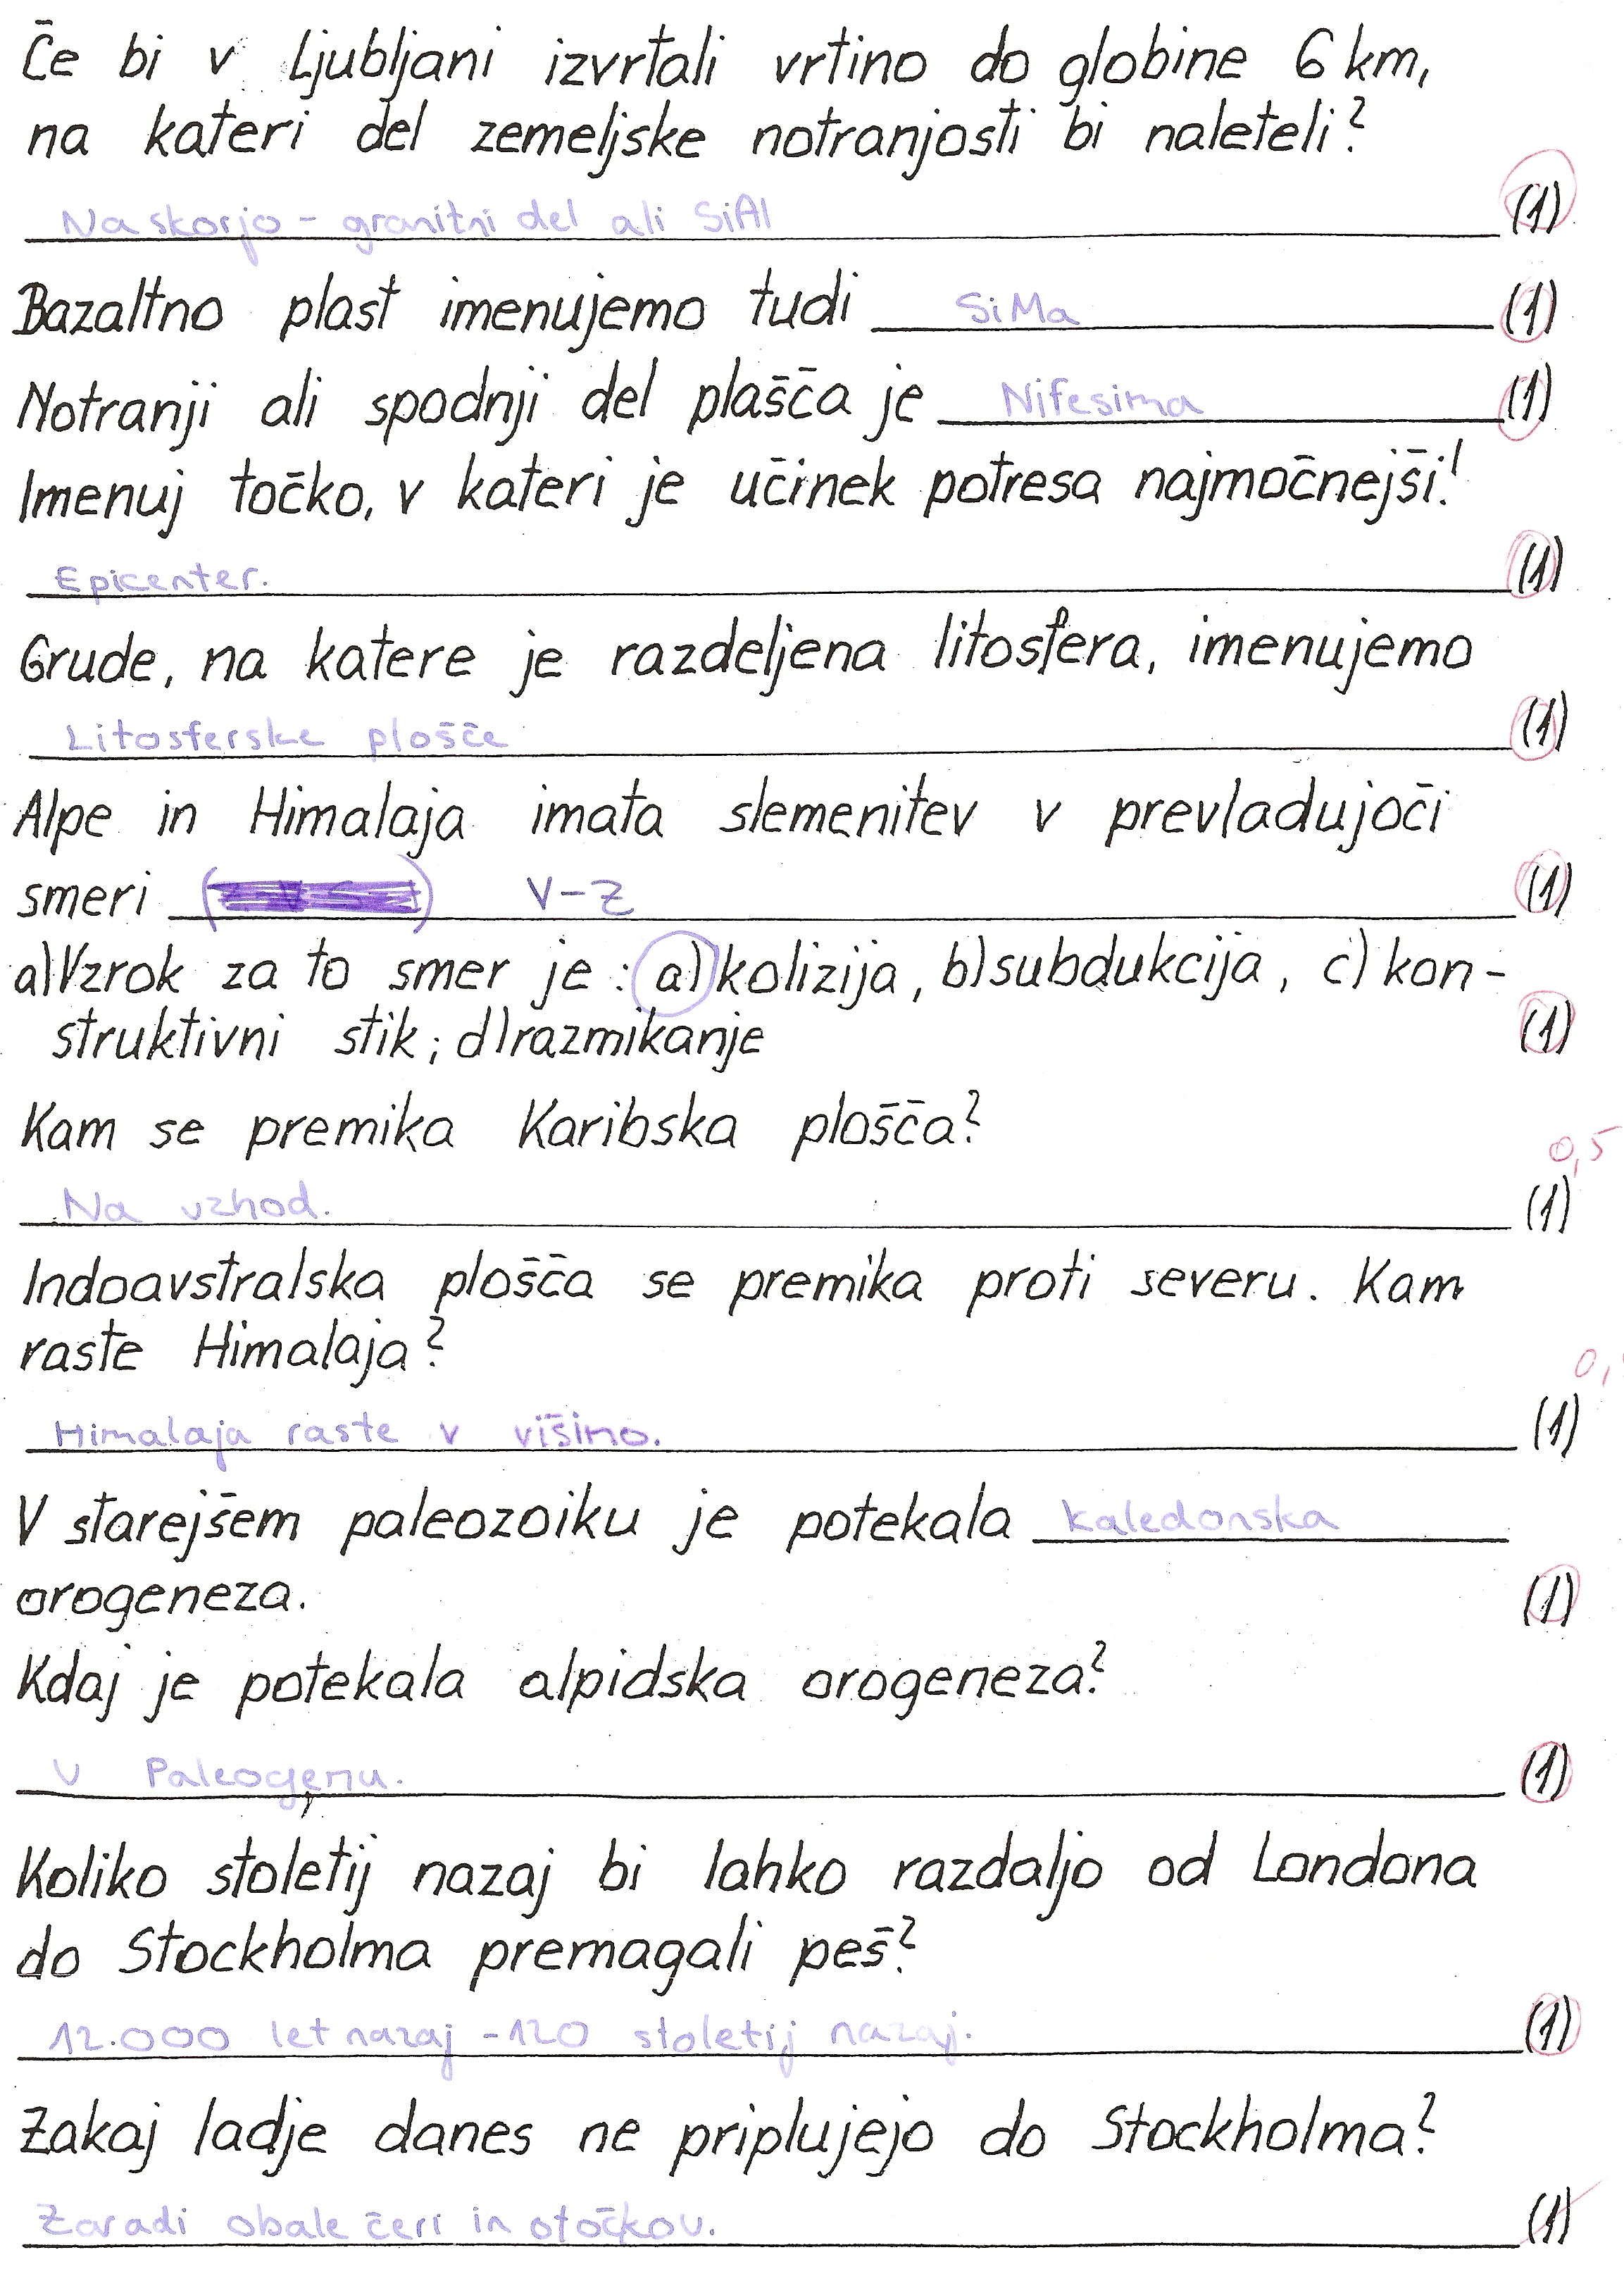 Če bi v Ljubljani izvrtali vrtino do globine 6 km,
na kateri del zemeljske notranjosti bi naleteli?
Na skorjo - granitni del ali SiAl (1)
Bazaltno plast imenujemo tudi SiMa (1)
Notranji ali spodnji del plašča je Nifesima (1)
Imenuj točko, v kateri je učinek potresa najmočnejši!
Epicenter. (1)
Grude, na katere je razdeljena litosfera, imenujemo
Litosferske plošče (1)
Alpe in Himalaja imata slemenitev v prevladujoči
smeri V-Z (1)
a) Vzrok za to smer je : a) kolizija, b) subdukcija, c) kon-
struktivni stik; d) razmikanje (1)
Kam se premika Karibska plošča?
0,5
Na vzhod. (1)
Indoavstralska plošča se premika proti severu. Kam
raste Himalaja?
0,
Himalaja raste v višino. (1)
V starejšem paleozoiku je potekala kaledonska
orogeneza. (1)
Kdaj je potekala alpidska orogeneza?
V Paleogenu. (1)
Koliko stoletij nazaj bi lahko razdaljo od Londona
do Stockholma premagali peš?
12.000 let nazaj - 120 stoletij nazaj. (1)
Zakaj ladje danes ne priplujejo do Stockholma?
Zaradi obale čeri in otočkov. (1)